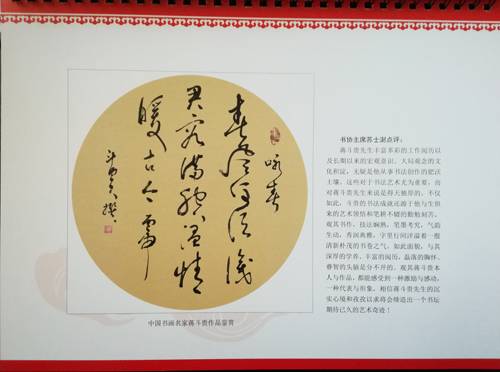 咏春
春风何须识
君容满腔温情
暖古今
斗贵撰
中国书画名家蒋斗贵作品鉴赏
书协主席苏士澍点评:
蒋斗贵先生丰富多彩的工作阅历以
及长期以来的宏观意识、大局观念的文
化积淀,无疑是他从事书法创作的肥沃
土壤。这些对于书法艺术尤为重要。而
对蒋斗贵先生来说是得天独厚的。不仅
如此,斗贵的书法成就还源于他与生俱
来的艺术领悟和笔耕不辍的勤勉刻苦。
观其书作,技法娴熟,笔墨考究,气韵
生动,秀润典雅,字里行间洋溢着一股
清新朴茂的书卷之气。如此面貌,与其
深厚的学养,丰富的阅历,磊落的胸怀,
睿智的头脑是分不开的。观其蒋斗贵本
人与作品,都能感受到一种激励与感动,
一种代表与形象。相信蒋斗贵先生的沉
实心境和孜孜以求将会缔造出一个书坛
期待已久的艺术奇迹!